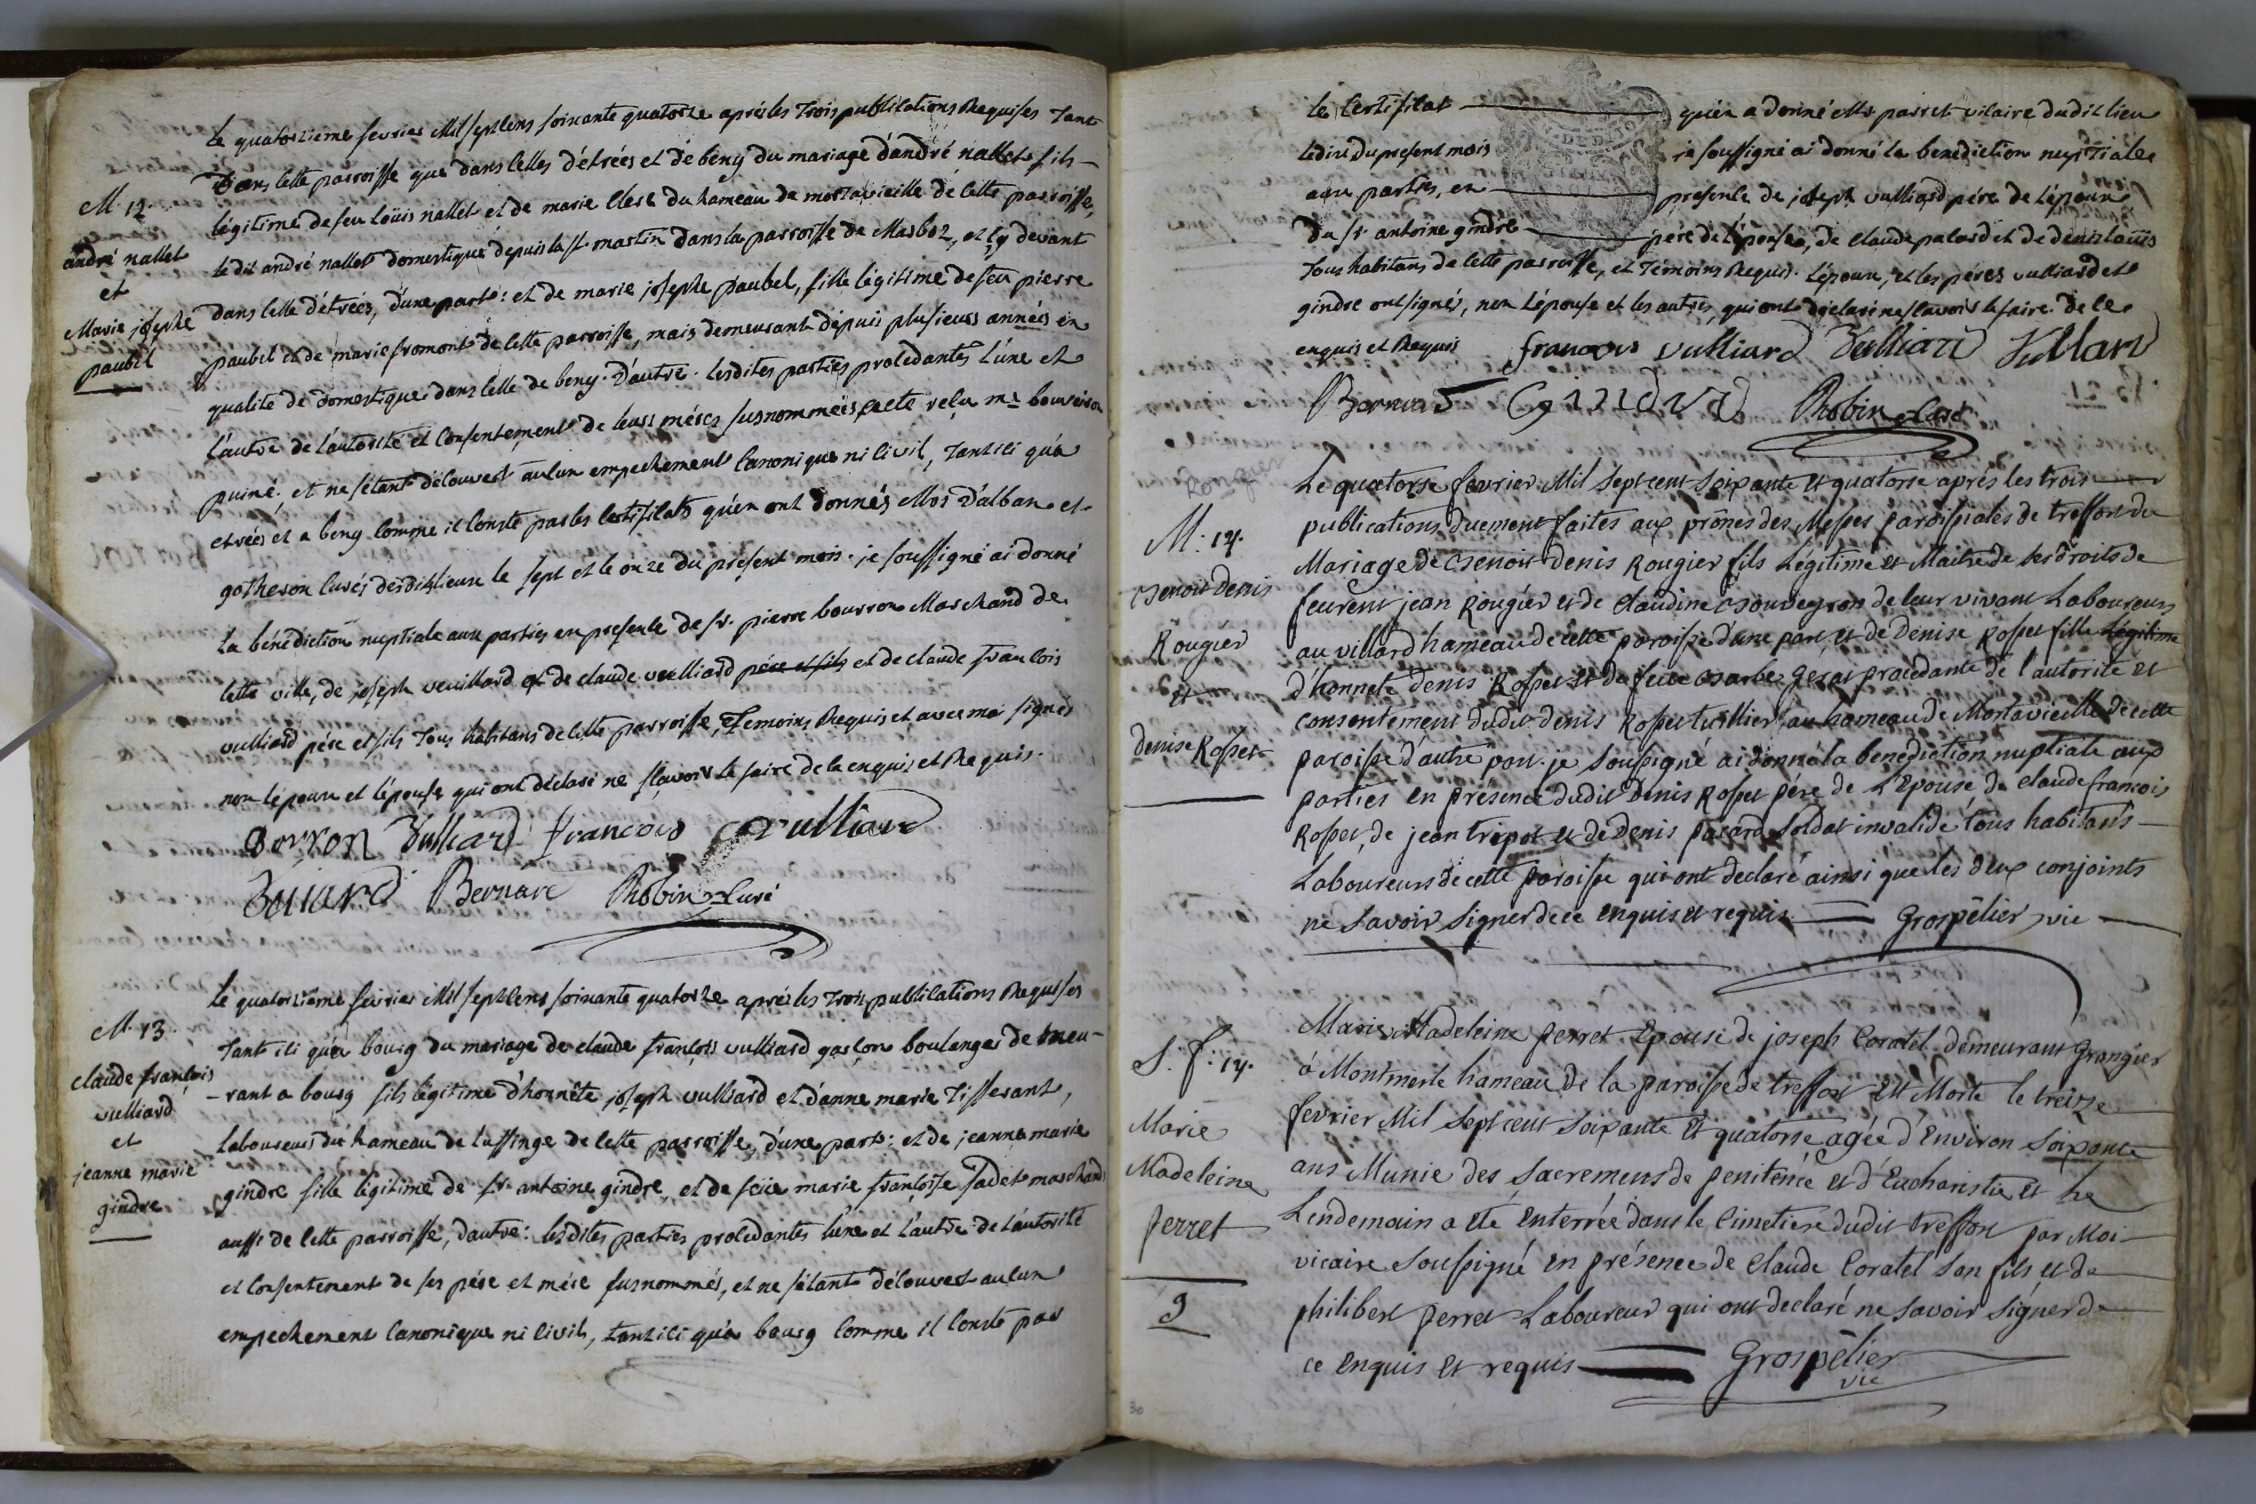 M. 12.
andré nallet
et
Marie josephe
paubel
Le quatorzieme fevrier Mil septcens soixante quatorze aprés les Trois publications Requises Tant
Dans cette parroisse que dans celles d'étrées et de beny du mariage d'andré nallet fils
légitime de feu loüis nallet et de marie clerc du hameau de mortavieille de cette parroisse,
ledit andré nallet domestique depuis la st martin dans la parroisse de Marboz, et cy devant
dans celle d'étrées, d'une part : et de marie josephe paubel, fille légitime de feu pierre
paubel et de marie fromont de cette parroisse, mais demeurant dépuis plusieurs années en
qualité de domestique dans celle de beny. D'autre. lesdites parties procedantes l'une et
l'autre de l'autorité et consentement de leurs méres susnommées acte reçu me
puiné ; et ne s'étant découvert aucun empechement canonique ni civil, Tant ici qu'a
etrées et a beny comme il conste par les certificats qu'en ont donnés Mrs D'alban et
gotheron curés desdits lieux le sept et le onze du present mois. je soussigné ai donné
La bénédiction nuptiale aux parties en presence de sr. pierre bourron Marchand de
cette ville, de joseph veuillard et de claude vulliard pére et fils et de claude francois
vulliard pére et fils Tous habitans de cette parroisse, Temoins Requis et avec moi signés
non l'époux et l'épouse qui ont déclaré ne sçavoir le faire de ce enquis et Requis.
Borron Vulliard francois vulliard
Bernard Robin Curé
M. 13.
claude françois
vulliard
et
jeanne marie
gindre
Le quatorzieme fevrier Mil septcens soixante quatorze aprés les Trois publications Requises
Tant ici qu'a bourg du mariage de claude françois vulliard garçon boulanger demeu-
-rant a bourg fils légitime d'honnête joseph vulliard et d'anne marie Tisserant,
Laboureurs du hameau de lussinge de cette parroisse, d'une part : et de jeanne marie
gindre fille légitime de sr antoine gindre, et de feüe marie françoise Jadet marchands
aussi de cette parroisse, d'autre : lesdites parties procedantes l'une et l'autre de l'autorité
et consentement de ses pére et mére susnommés, et ne s'étant découvert aucun
empechement canonique ni civil, tant ici qu'a bourg comme il conste par
le certificat qu'en a donné Mr parret vicaire dudit lieu
ledix du present mois je soussigné ai donné la benediction nuptiale
aux parties, en presence de joseph vulliard pére de l'époux
Du sr. antoine gindre pere de l'épouse, de claude palard et de denis loüis
Tous habitans de cette parroisse, et Témoins Requis. L'époux, et les péres vulliard et
gindre ont signés, non l'épouse et les autres qui ont déclaré ne sçavoir le faire. de ce
enquis et Requis francois vulliard Vulliard
Bernard Gindre Robin Curé
Rougier
M: 14.
Benoit Denis
Rougier
et
denise Rosset
Le quatorse fevrier Mil Sept cent Soixante et quatorse aprés les trois
publications duement faites aux prônes des Messes paroissiales de treffort du
Mariage de Benoit Denis Rougier fils Légitime et Maitre de ses droits de
feurent jean Rougier et de Claudine Bouveyron de leur vivant Laboureurs
au villard hameau de cette paroisse d'une part, et de Denise Rosset fille Légitime
d'honnete Denis Rosset et de feüe Barbe gerat procedante de l'autorité et
consentement dudit Denis Rosset tuillier au hameau de Mortavieille de cette
paroisse d'autre part. je soussigné ai donné la benediction nuptiale aux
parties en presence dudit Denis Rosset pére de L'Epouse de claude françois
Rosset, de jean tripot et de Denis pacard Soldat invalide tous habitants
Laboureurs de cette paroisse qui ont declaré ainsi que les deux conjoints
ne savoir signer de ce enquis et requis Grospêlier vic
S. f: 14.
Marie
Madeleine
perret
9
Marie Madeleine perret Epouse de joseph Coratel demeurant Grangier
à Montmerle hameau de la paroisse de treffort Est Morte le treize
fevrier Mil Sept cent Soixante Et quatorse agée d'Environ Soixante
ans Munie des Sacremens de penitence et d'Eucharistie Et le
Lendemain a été Enterrée dans le Cimetiere dudit treffort par Moi
vicaire Soussigné en présence de Claude Coratel Son fils et de
philibert perret Laboureur qui ont declaré ne savoir Signer de
ce Enquis Et requis Grospêlier
vic
30